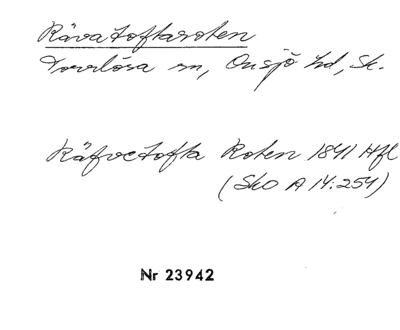 Rävatoftaroten
Torrlösa sn, Onsjö hd, Sk.
Räfvetofta Roten 1841 Hfl
(Sko A 14:254)
Nr 23942